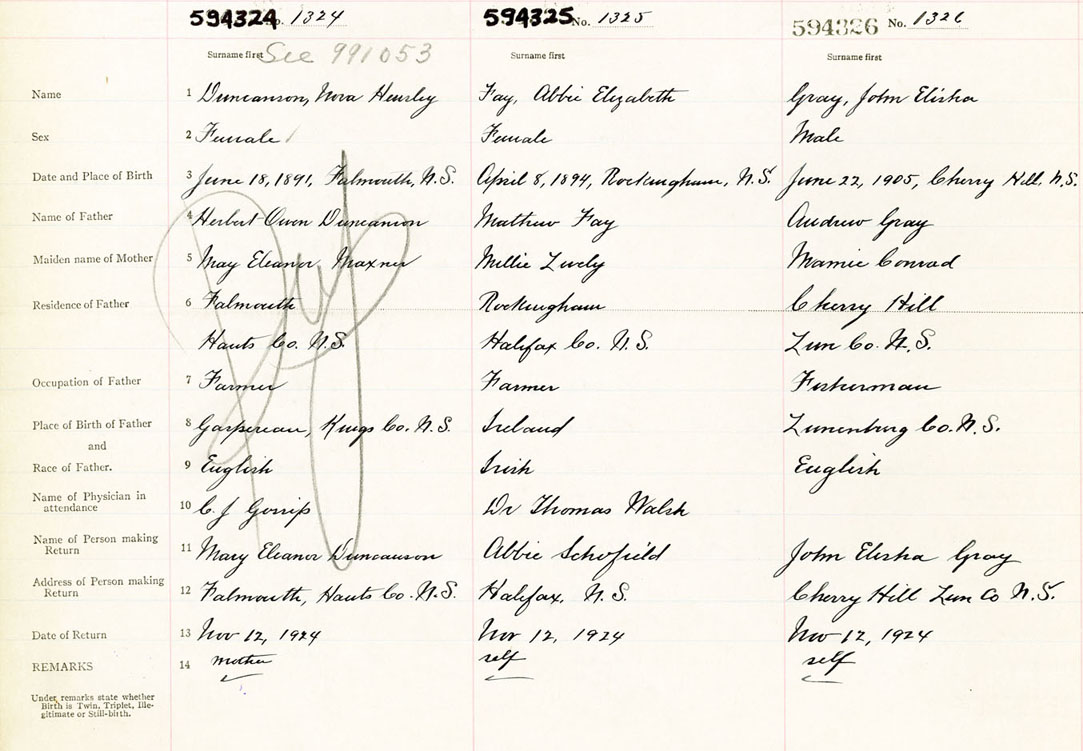 594324 No. 1324 594325 No. 1325 594326 No. 1326
Surname first See 991053 Surname first Surname first
Name 1 Duncanson, Nora Hensley Fay, Abbie Elizabeth Gray, John Elisha
Sex 2 Female Female Male
Date and Place of Birth 3 June 18, 1891, Falmouth, N.S. April 8, 1894, Rockingham, N.S. June 22, 1905, Cherry Hill, N.S.
Name of Father 4 Herbert Owen Duncanson Mathew Fay Andrew Gray
Maiden name of Mother 5 May Eleanor Maxner Millie Lively Mamie Conrad
Residence of Father 6 Falmouth Rockingham Cherry Hill
Hants Co. N.S. Halifax Co. N.S. Lun Co. N.S.
Occupation of Father 7 Farmer Farmer Fisherman
Place of Birth of Father 8 Gaspereau, Kings Co. N.S. Ireland Lunenburg Co. N.S.
and
Race of Father. 9 English Irish English
Name of Physician in
attendance 10 C. J Gossip Dr Thomas Walsh
Name of Person making
Return 11 Mary Eleanor Duncanson Abbie Schofield John Elisha Gray
Address of Person making
Return 12 Falmouth, Hants Co. N.S. Halifax, N.S. Cherry Hill Lun Co N.S.
Date of Return 13 Nov 12, 1924 Nov 12, 1924 Nov 12, 1924
REMARKS 14 mother self self
Under remarks state whether
Birth is Twin, Triplet, Ille-
gitimate or Still-birth.